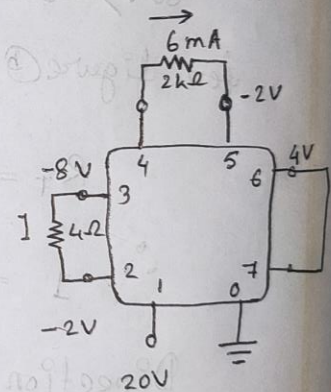 6mA
2kΩ
-2V
4
5
6
4V
-8V
3
I
4Ω
2
7
-2V
1
0
20V